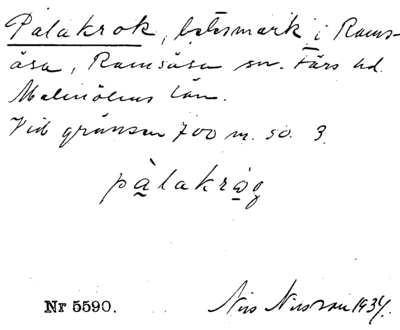 Palakrok, betesmark i Rams-
åsa, Ramsåsa sn. Färs hd.
Malmöhus län.
Vid gränsen 700 m. so. 3.
pàlakrog
Nr 5590. Nils Nilsson 1934.